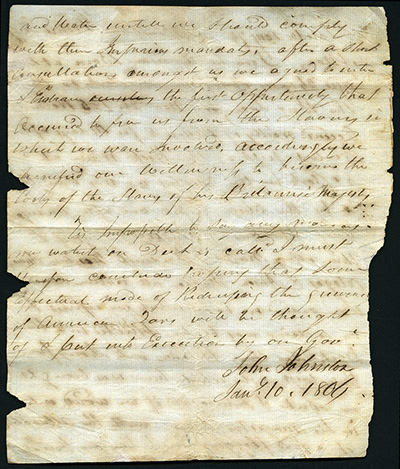 and Water untill we should comply
with their Injurious mandate; after a short
Consultation amongst us we agreed to enter
the first Opportunity that
Occurred to free us from the Slavery in
which we ware Involved, accordingly we
our Willingness to become the
of the Slaves of his Britannic Majesty
Tis Impossible to Say any more as
my watch on Deck is call'd I must
therefore conclude hoping that Some
Effectual mode of Redressing the grievances
of American Tars will be thought
of & put into Execution by our Govt.
John Johnston
Jany. 10. 1806